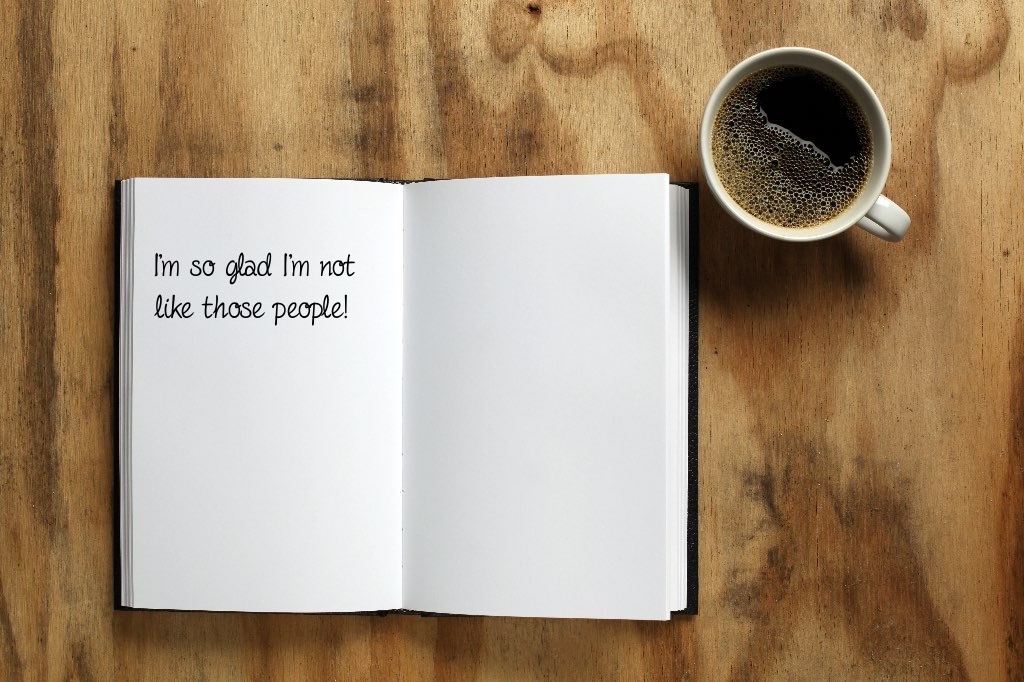 I'm so glad I'm not
like those people!